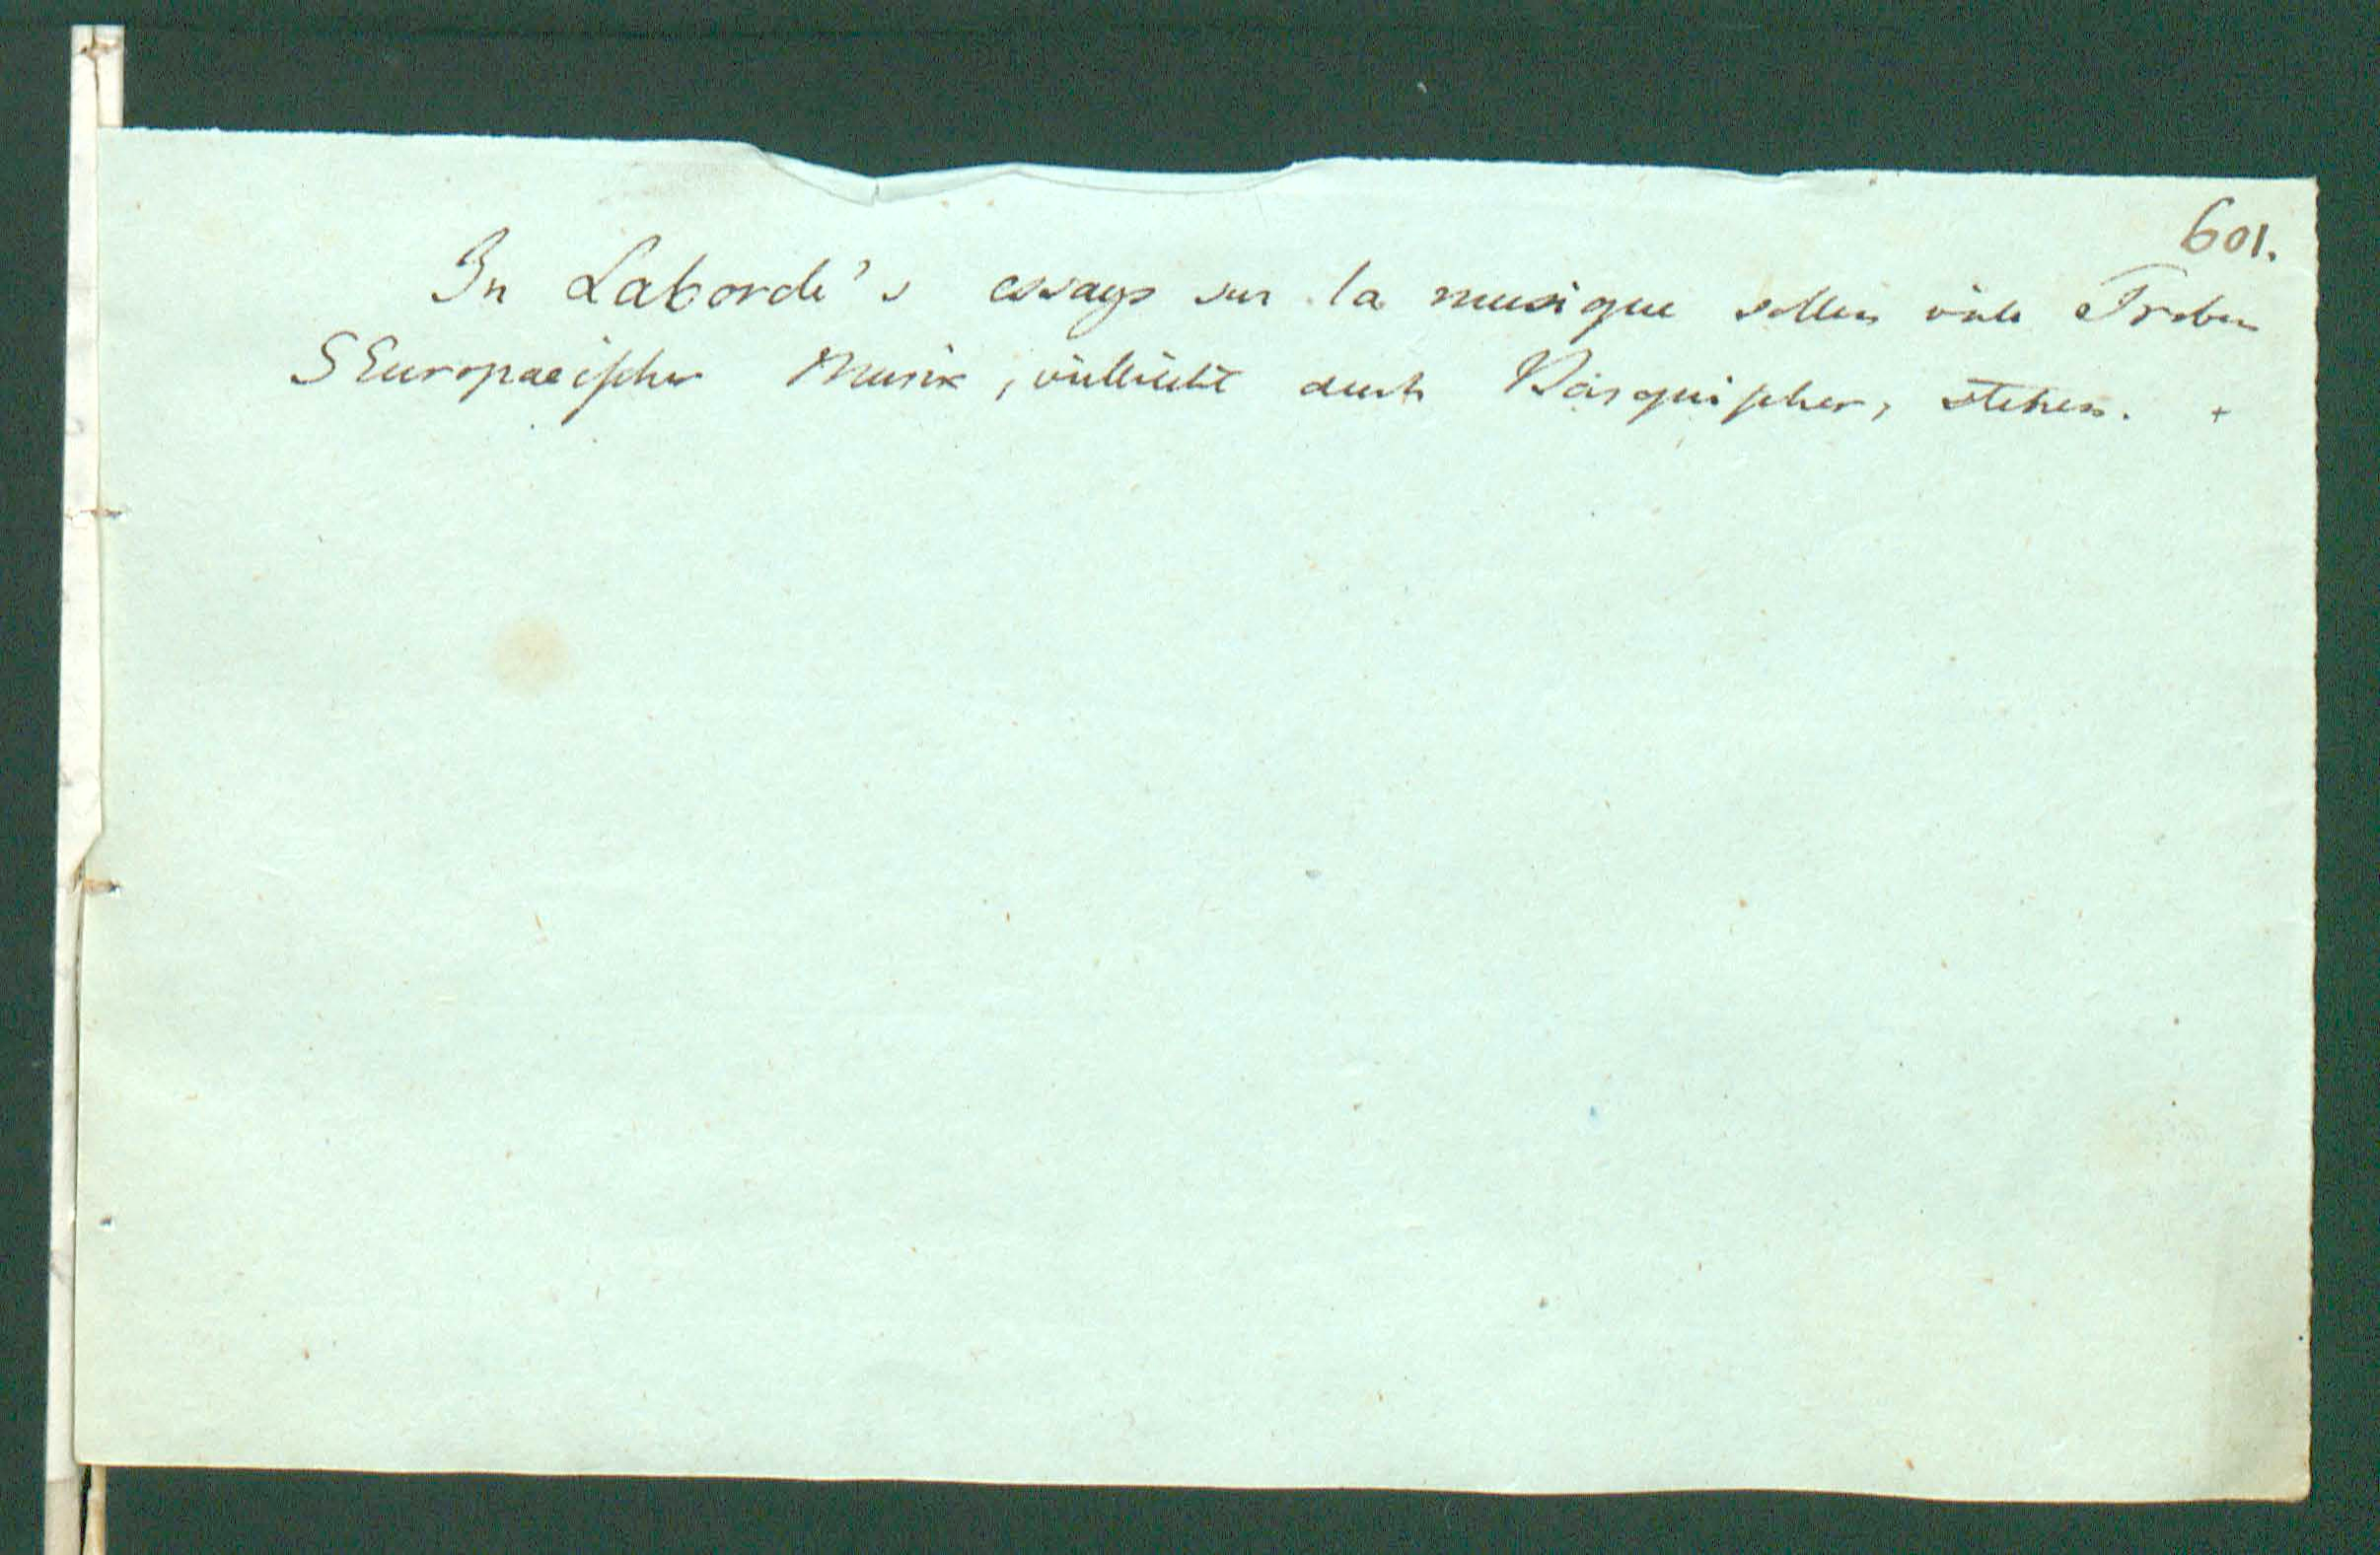 601.
In Laborde's essays sur la musique sollen viele Proben
SEuropaeischer Musik, vielleicht auch Vasquischer, stehen. +